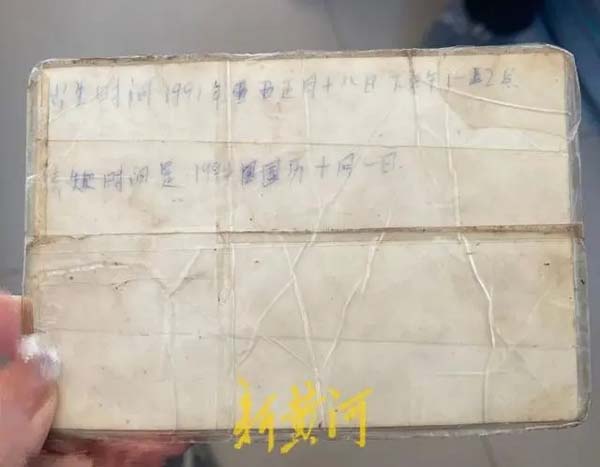 出生时间1991年正月十八日下午1-2点
时间是1992国历十月一日
新黄河